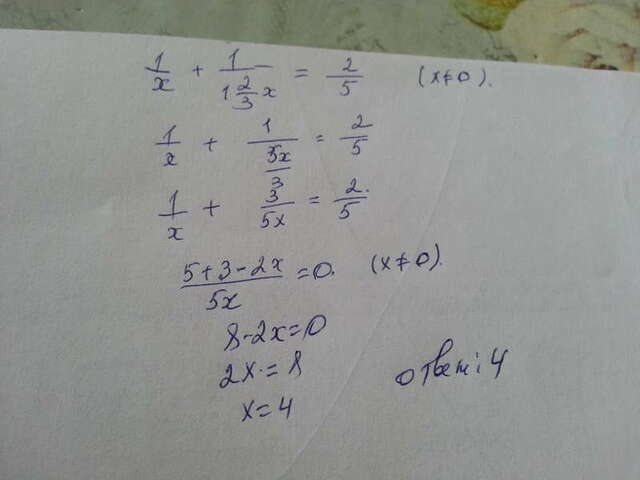 1/x + 1/(1 2/3 x) = 2/5 (x≠0).
1/x + 1/(5x/3) = 2/5
1/x + 3/5x = 2/5
(5+3-2x)/5x = 0. (x≠0).
8-2x=0
2x=8
x=4 ответ: 4